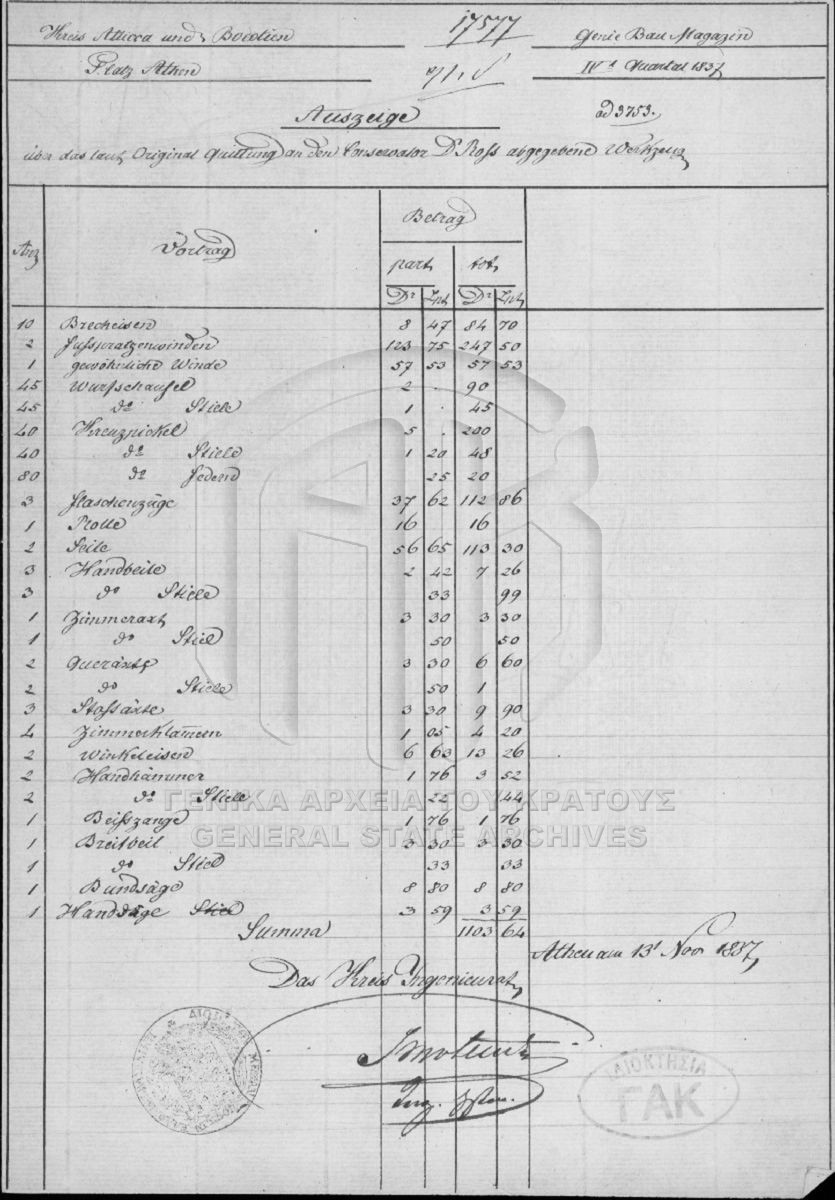 17577
Kreis Attica und Boeotien
Genie Bau Magazin
Platz Athen
IVt Quartal 1837
Auszeige
ad 3753.
über das laut Original Quittung an den Conservator Dr Ross abgegebene Werkzeug
Anz Vortrag Betrag
part tot
Dr Lpt Dr Lpt
10 Brecheisen 8 47 84 70
2 Fusspratzenwinden 123 75 247 50
1 gewöhnliche Winde 57 53 57 53
45 Wurfschaufel 2 . 90
45 do Stiele 1 . 45
40 Kreuzpickel 5 . 200
40 do Stiele 1 20 48
80 do Federn 25 20
3 Flaschenzüge 37 62 112 86
1 Rolle 16 16
2 Seile 56 65 113 30
3 Handbeile 2 42 7 26
3 do Stiele 33 99
1 Zimmeraxt 3 30 3 30
1 do Stiel 50 50
2 Queräxte 3 30 6 60
2 do Stiele 50 1
3 Stossäxte 3 30 9 90
4 Zimmerklamern 1 05 4 20
2 Winkeleisen 6 63 13 26
2 Handhämmer 1 76 3 52
2 do Stiele 22 44
1 Beißzange 1 76 1 76
1 Breitbeil 3 30 3 30
1 do Stiel 33 33
1 Bundsäge 8 80 8 80
1 Handsäge Stiel 3 59 3 59
Summa 1103 64
Athen am 13t Nov 1837
Das Kreis Ingenieurat
ΓΕΝΙΚΑ ΑΡΧΕΙΑ ΤΟΥ ΚΡΑΤΟΥΣ
GENERAL STATE ARCHIVES
ΙΔΙΟΚΤΗΣΙΑ
ΓΑΚ